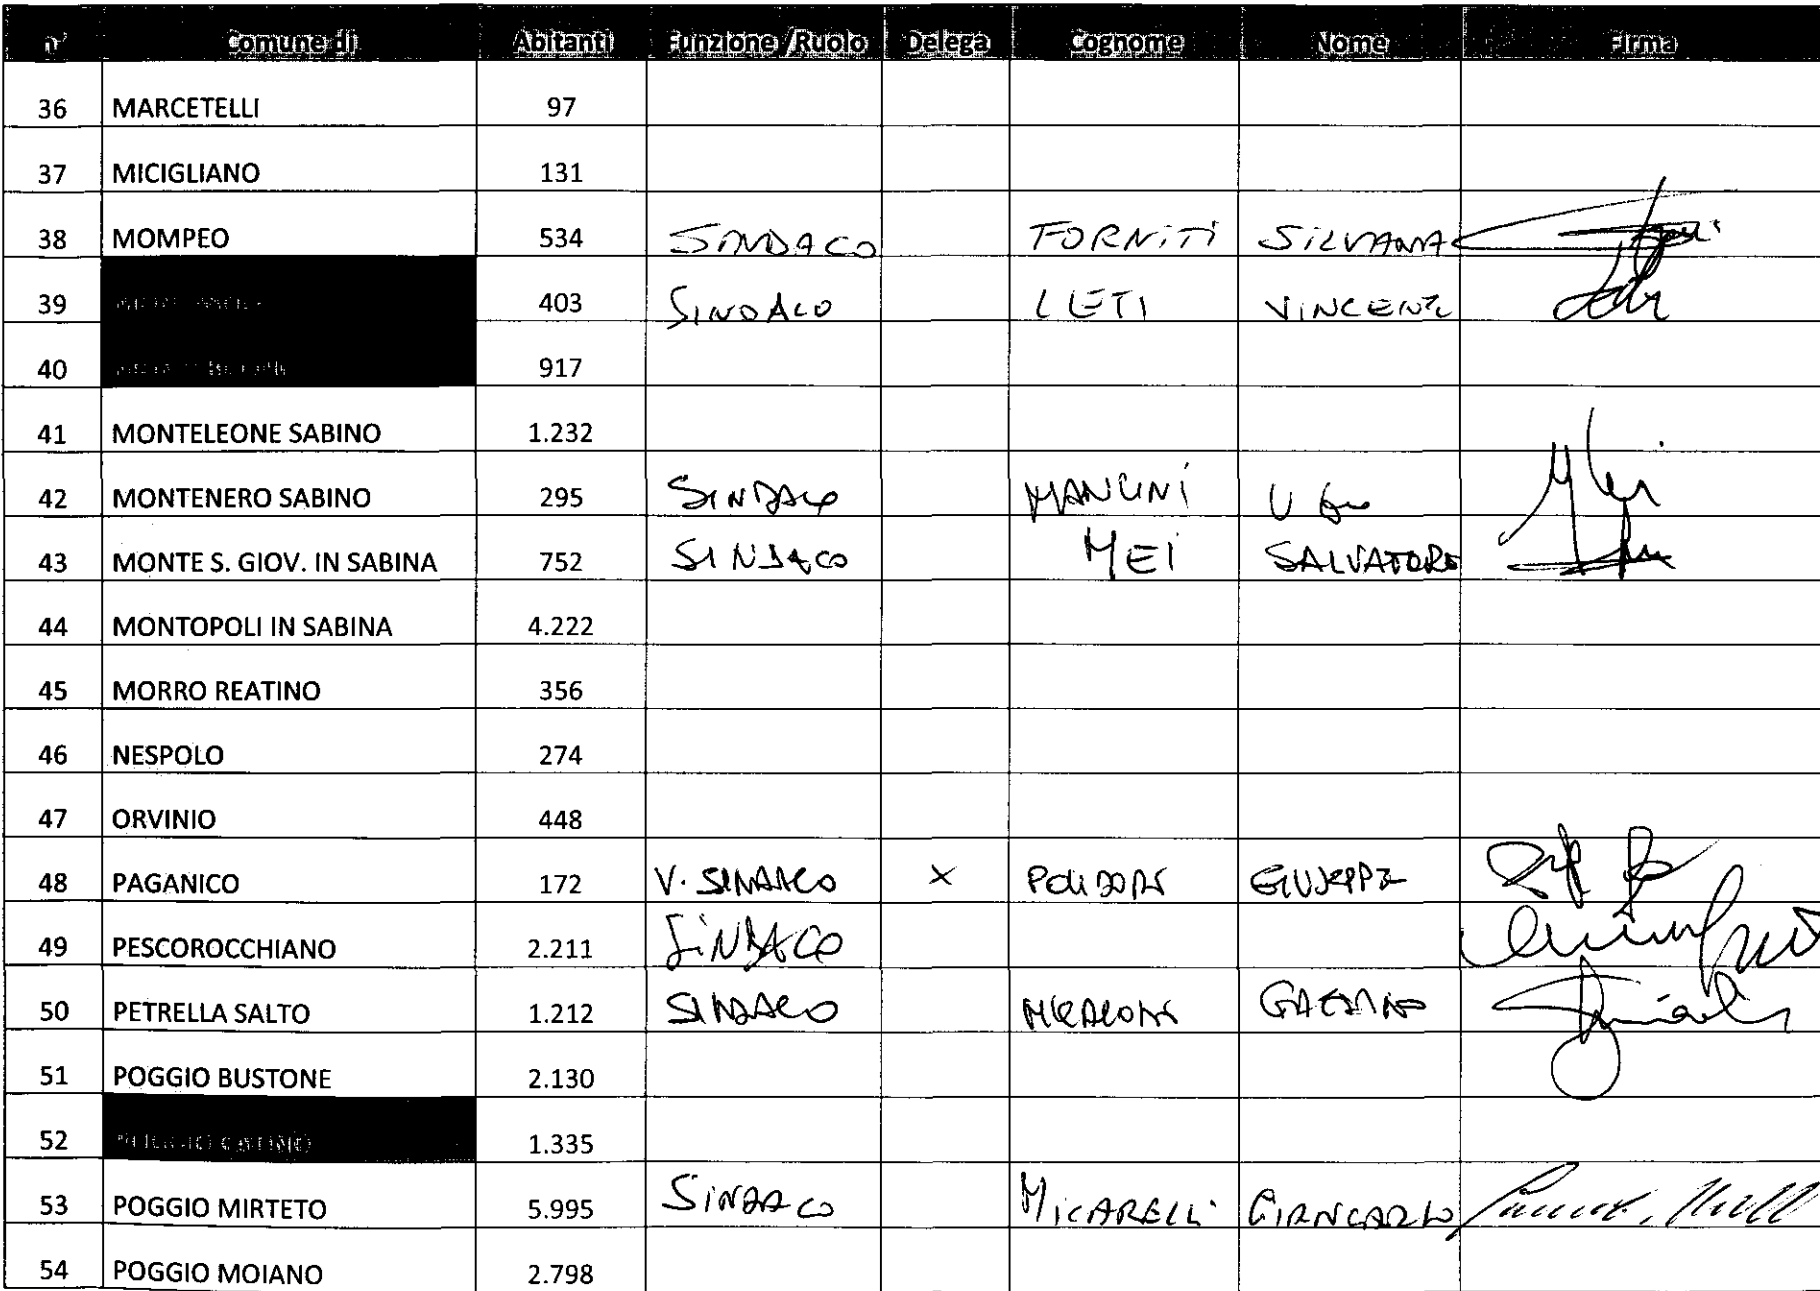 n° Comune di Abitanti Funzione /Ruolo Delega Cognome Nome Firma
36 MARCETELLI 97
37 MICIGLIANO 131
38 MOMPEO 534 SINDACO FORNITI SILVANA
39 403 SINDACO LETI
40 917
41 MONTELEONE SABINO 1.232
42 MONTENERO SABINO 295 SINDACO MANCINI
43 MONTE S. GIOV. IN SABINA 752 SINDACO MEI SALVATORE
44 MONTOPOLI IN SABINA 4.222
45 MORRO REATINO 356
46 NESPOLO 274
47 ORVINIO 448
48 PAGANICO 172 V. SINDACO X GIUSEPPE
49 PESCOROCCHIANO 2.211 SINDACO
50 PETRELLA SALTO 1.212 SINDACO GAETANO
51 POGGIO BUSTONE 2.130
52 1.335
53 POGGIO MIRTETO 5.995 SINDACO MICARELLI GIANCARLO
54 POGGIO MOIANO 2.798